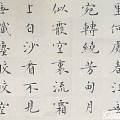 里何處春江無
宛轉繞芳甸月
似霰空裏流霜
上白沙看不見
塵皎皎空